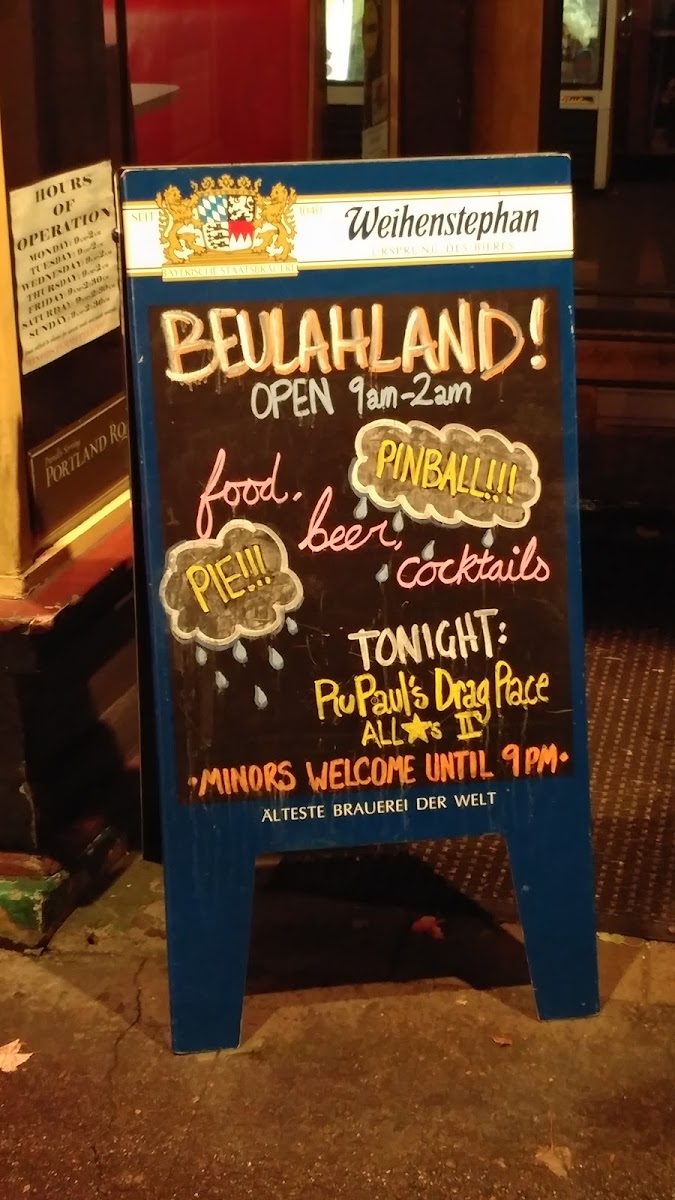 HOURS
OF
OPERATION
MONDAY:
TUESDAY:
WEDNESDAY:
THURSDAY:
FRIDAY:
SATURDAY:
SUNDAY:
Proudly Serving
PORTLAND RO
SEIT 1040
BAYERISCHE STAATSBRAUEREI
Weihenstephan
URSPRUNG DES BIERES
BEULAHLAND!
OPEN 9am-2am
PINBALL!!!
food.
beer,
cocktails
PIE!!!
TONIGHT:
RuPaul's Drag Race
ALL★'s II
•MINORS WELCOME UNTIL 9PM•
ÄLTESTE BRAUEREI DER WELT